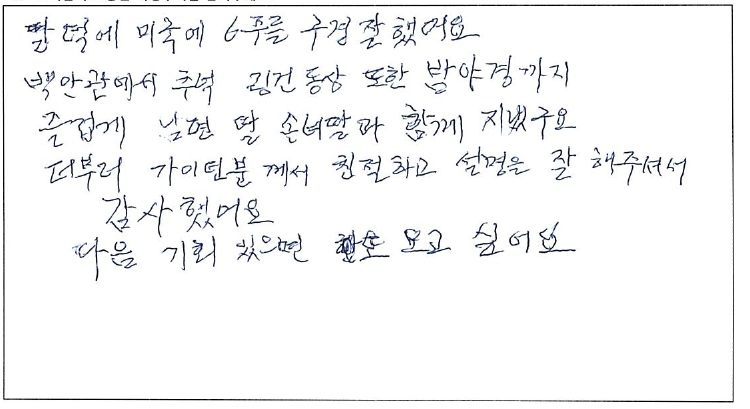 딸 덕에 미국에 6푸를 구경 잘 했어요
백안관에서 추억 링컨동상 또한 밤야경까지
즐겁게 남편 딸 손녀딸과 함게 지냈구요
더부러 가이턴분 께서 친절하고 설명은 잘 해주셔서
감사했어요
다음 기회 있으면 또 오고 싶어요